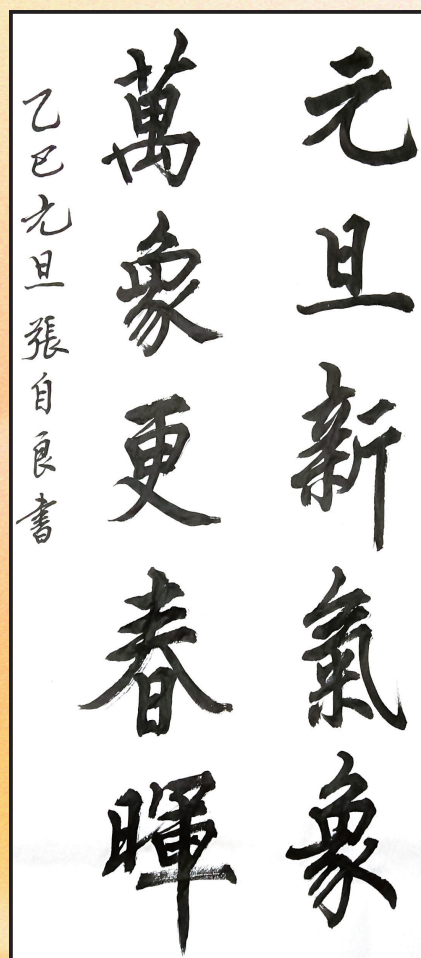 元旦新氣象
萬象更春暉
乙巳元旦張自良書